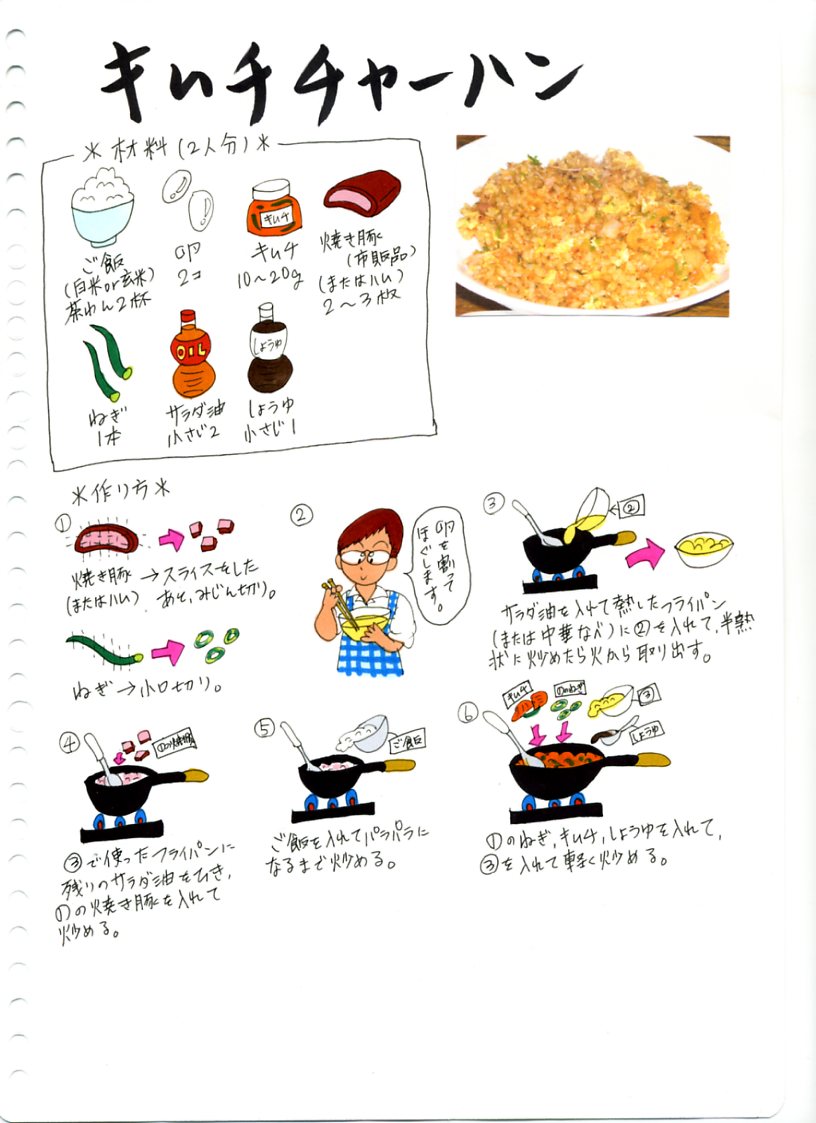 キムチチャーハン
＊材料(2人分)＊
ご飯
(白米or玄米)
茶わん2杯
卵
2コ
キムチ
キムチ
10～20g
焼き豚
(市販品)
(またはハム)
2～3枚
ねぎ
1本
OIL
サラダ油
小さじ2
しょうゆ
しょうゆ
小さじ1
＊作り方＊
①
焼き豚→スライスをした
(またはハム) あと、みじん切り。
ねぎ→小口切り。
②
卵を割って
ほぐします。
③
②
サラダ油を入れて熱したフライパン
(または中華なべ)に②を入れて、半熟
状に炒めたら火から取り出す。
④
①の焼き豚
③で使ったフライパンに
残りのサラダ油をひき、
①の焼き豚を入れて
炒める。
⑤
ご飯
ご飯を入れてパラパラに
なるまで炒める。
⑥
キムチ
①のねぎ
③
しょうゆ
①のねぎ、キムチ、しょうゆを入れて、
③を入れて軽く炒める。